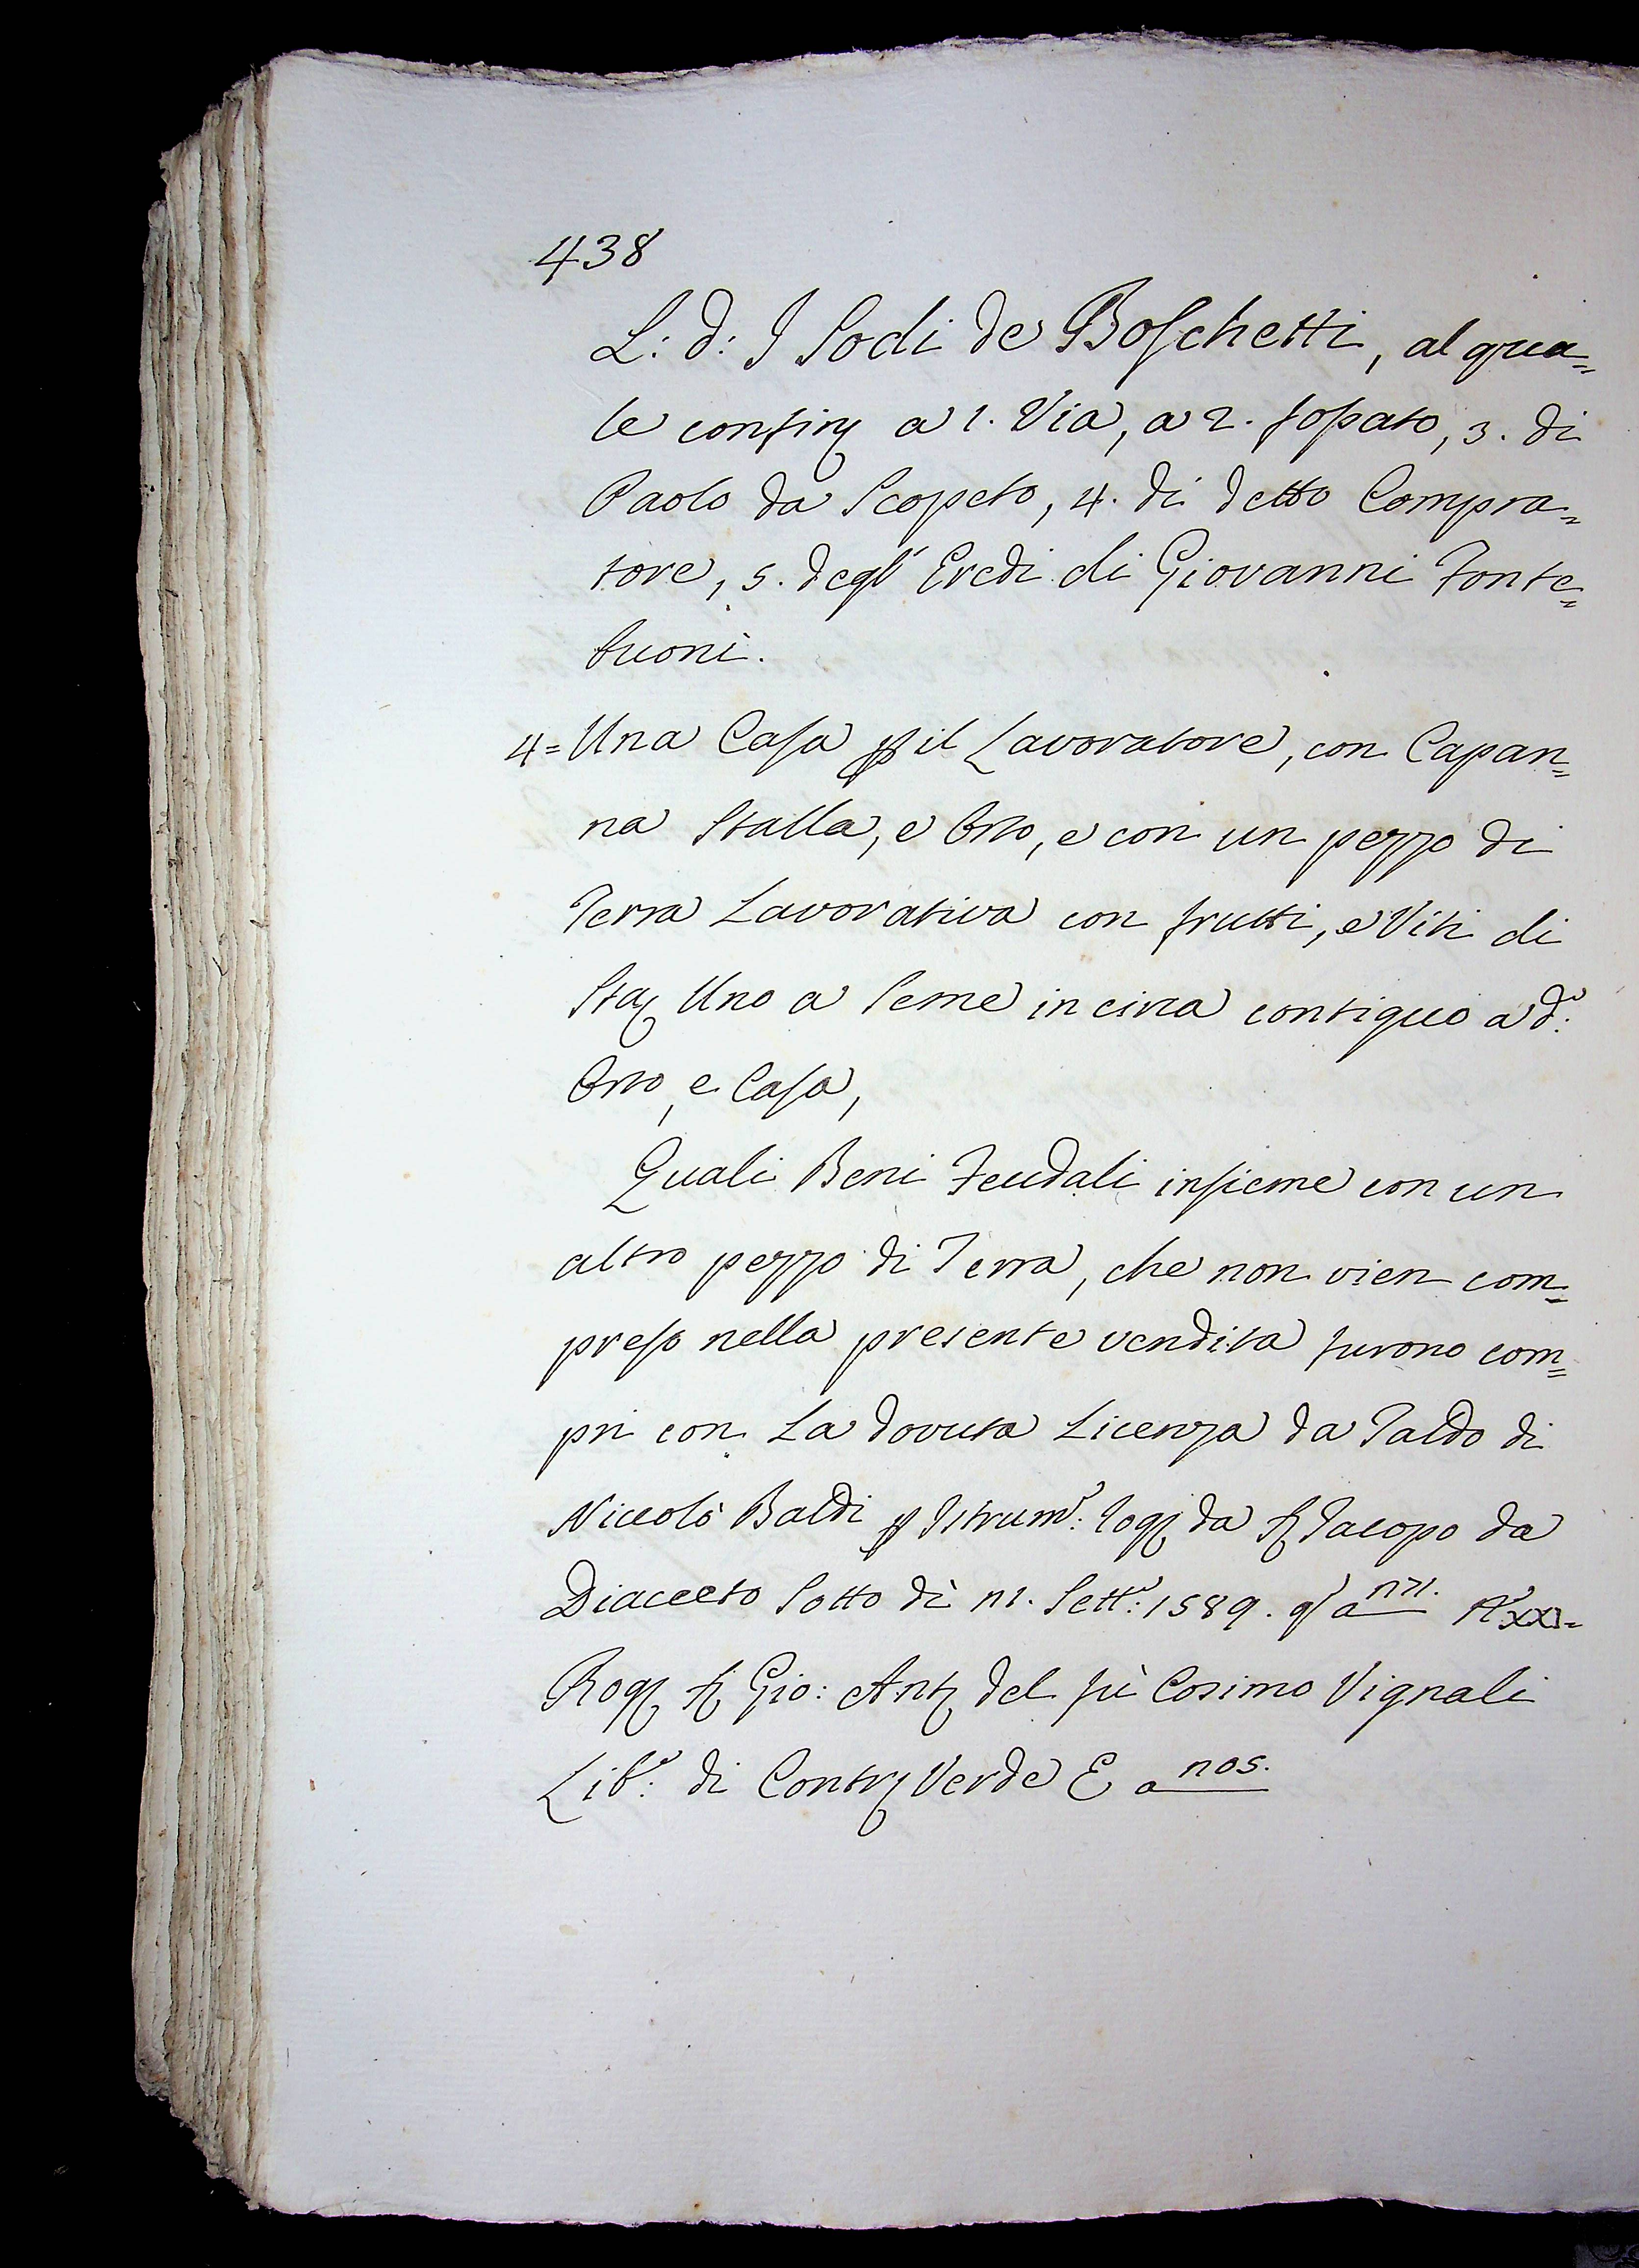 438
L: d: I Sodi de Boschetti, al qua=
le confin a 1. Via, a 2. fossato, 3. di
Paolo da Scopeto, 4. di detto Compra=
tore, 5. degl' Eredi di Giovanni Fonte=
buoni.
4= Una Casa p il Lavoratore, con Capan=
na Stalla, e Orto, e con un pezzo di
Terra Lavorativa con frutti, e Viti di
Sta Uno a Seme in circa contiguo a d.°
Orto, e Casa,
Quali Beni Feudali insieme con un
altro pezzo di Terra, che non vien com=
preso nella presente vendita furono com=
pri con La dovuta Licenza da Taldo di
Niccolò Baldi p Istrum.° Rog da S Jacopo da
Diacceto Sotto dì 11. Sett.e 1589.
Rog S Gio: Ant del fù Cosimo Vignali
Lib.° di Contr Verde E a 105.